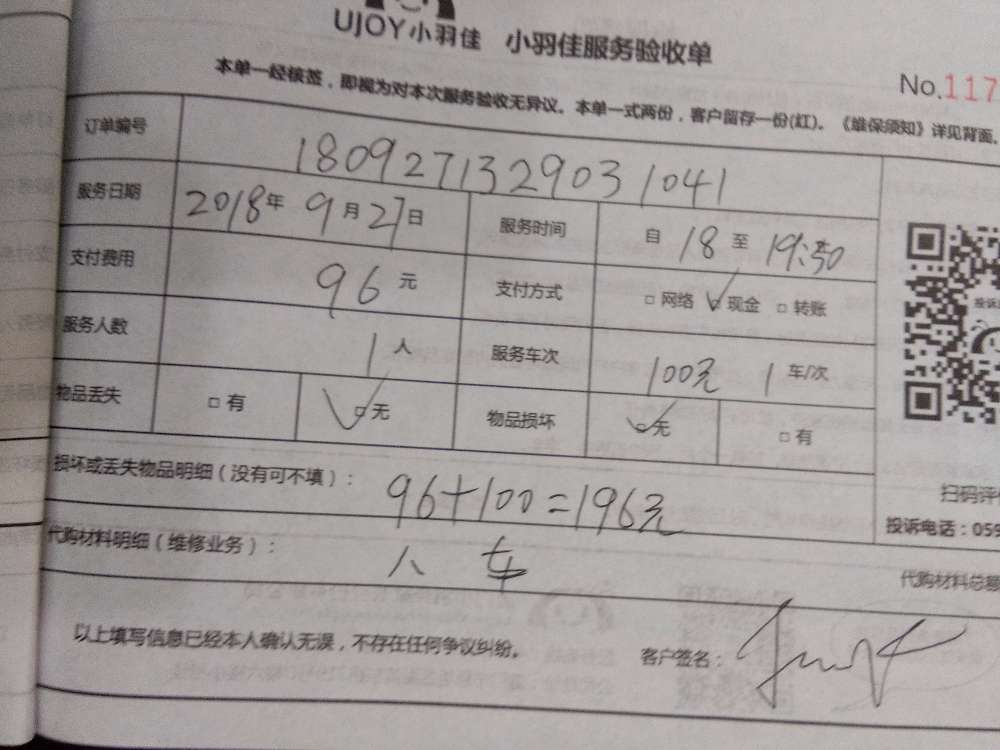 UJOY小羽佳 小羽佳服务验收单
No.117
本单一经核签，即视为对本次服务验收无异议。本单一式两份，客户留存一份(红)。《维保须知》详见背面。
订单编号 1809271329031041
服务日期 2018年 9月27日 服务时间 自 18 至 19:50
支付费用 96元 支付方式 □网络 ☑现金 □转账
服务人数 1人 服务车次 100元 1车/次
物品丢失 □有 ☑无 物品损坏 ☑无 □有
投诉
损坏或丢失物品明细（没有可不填）： 96+100=196元
扫码评
投诉电话：059
代购材料明细（维修业务）： 人 车
代购材料总额
以上填写信息已经本人确认无误，不存在任何争议纠纷。 客户签名：